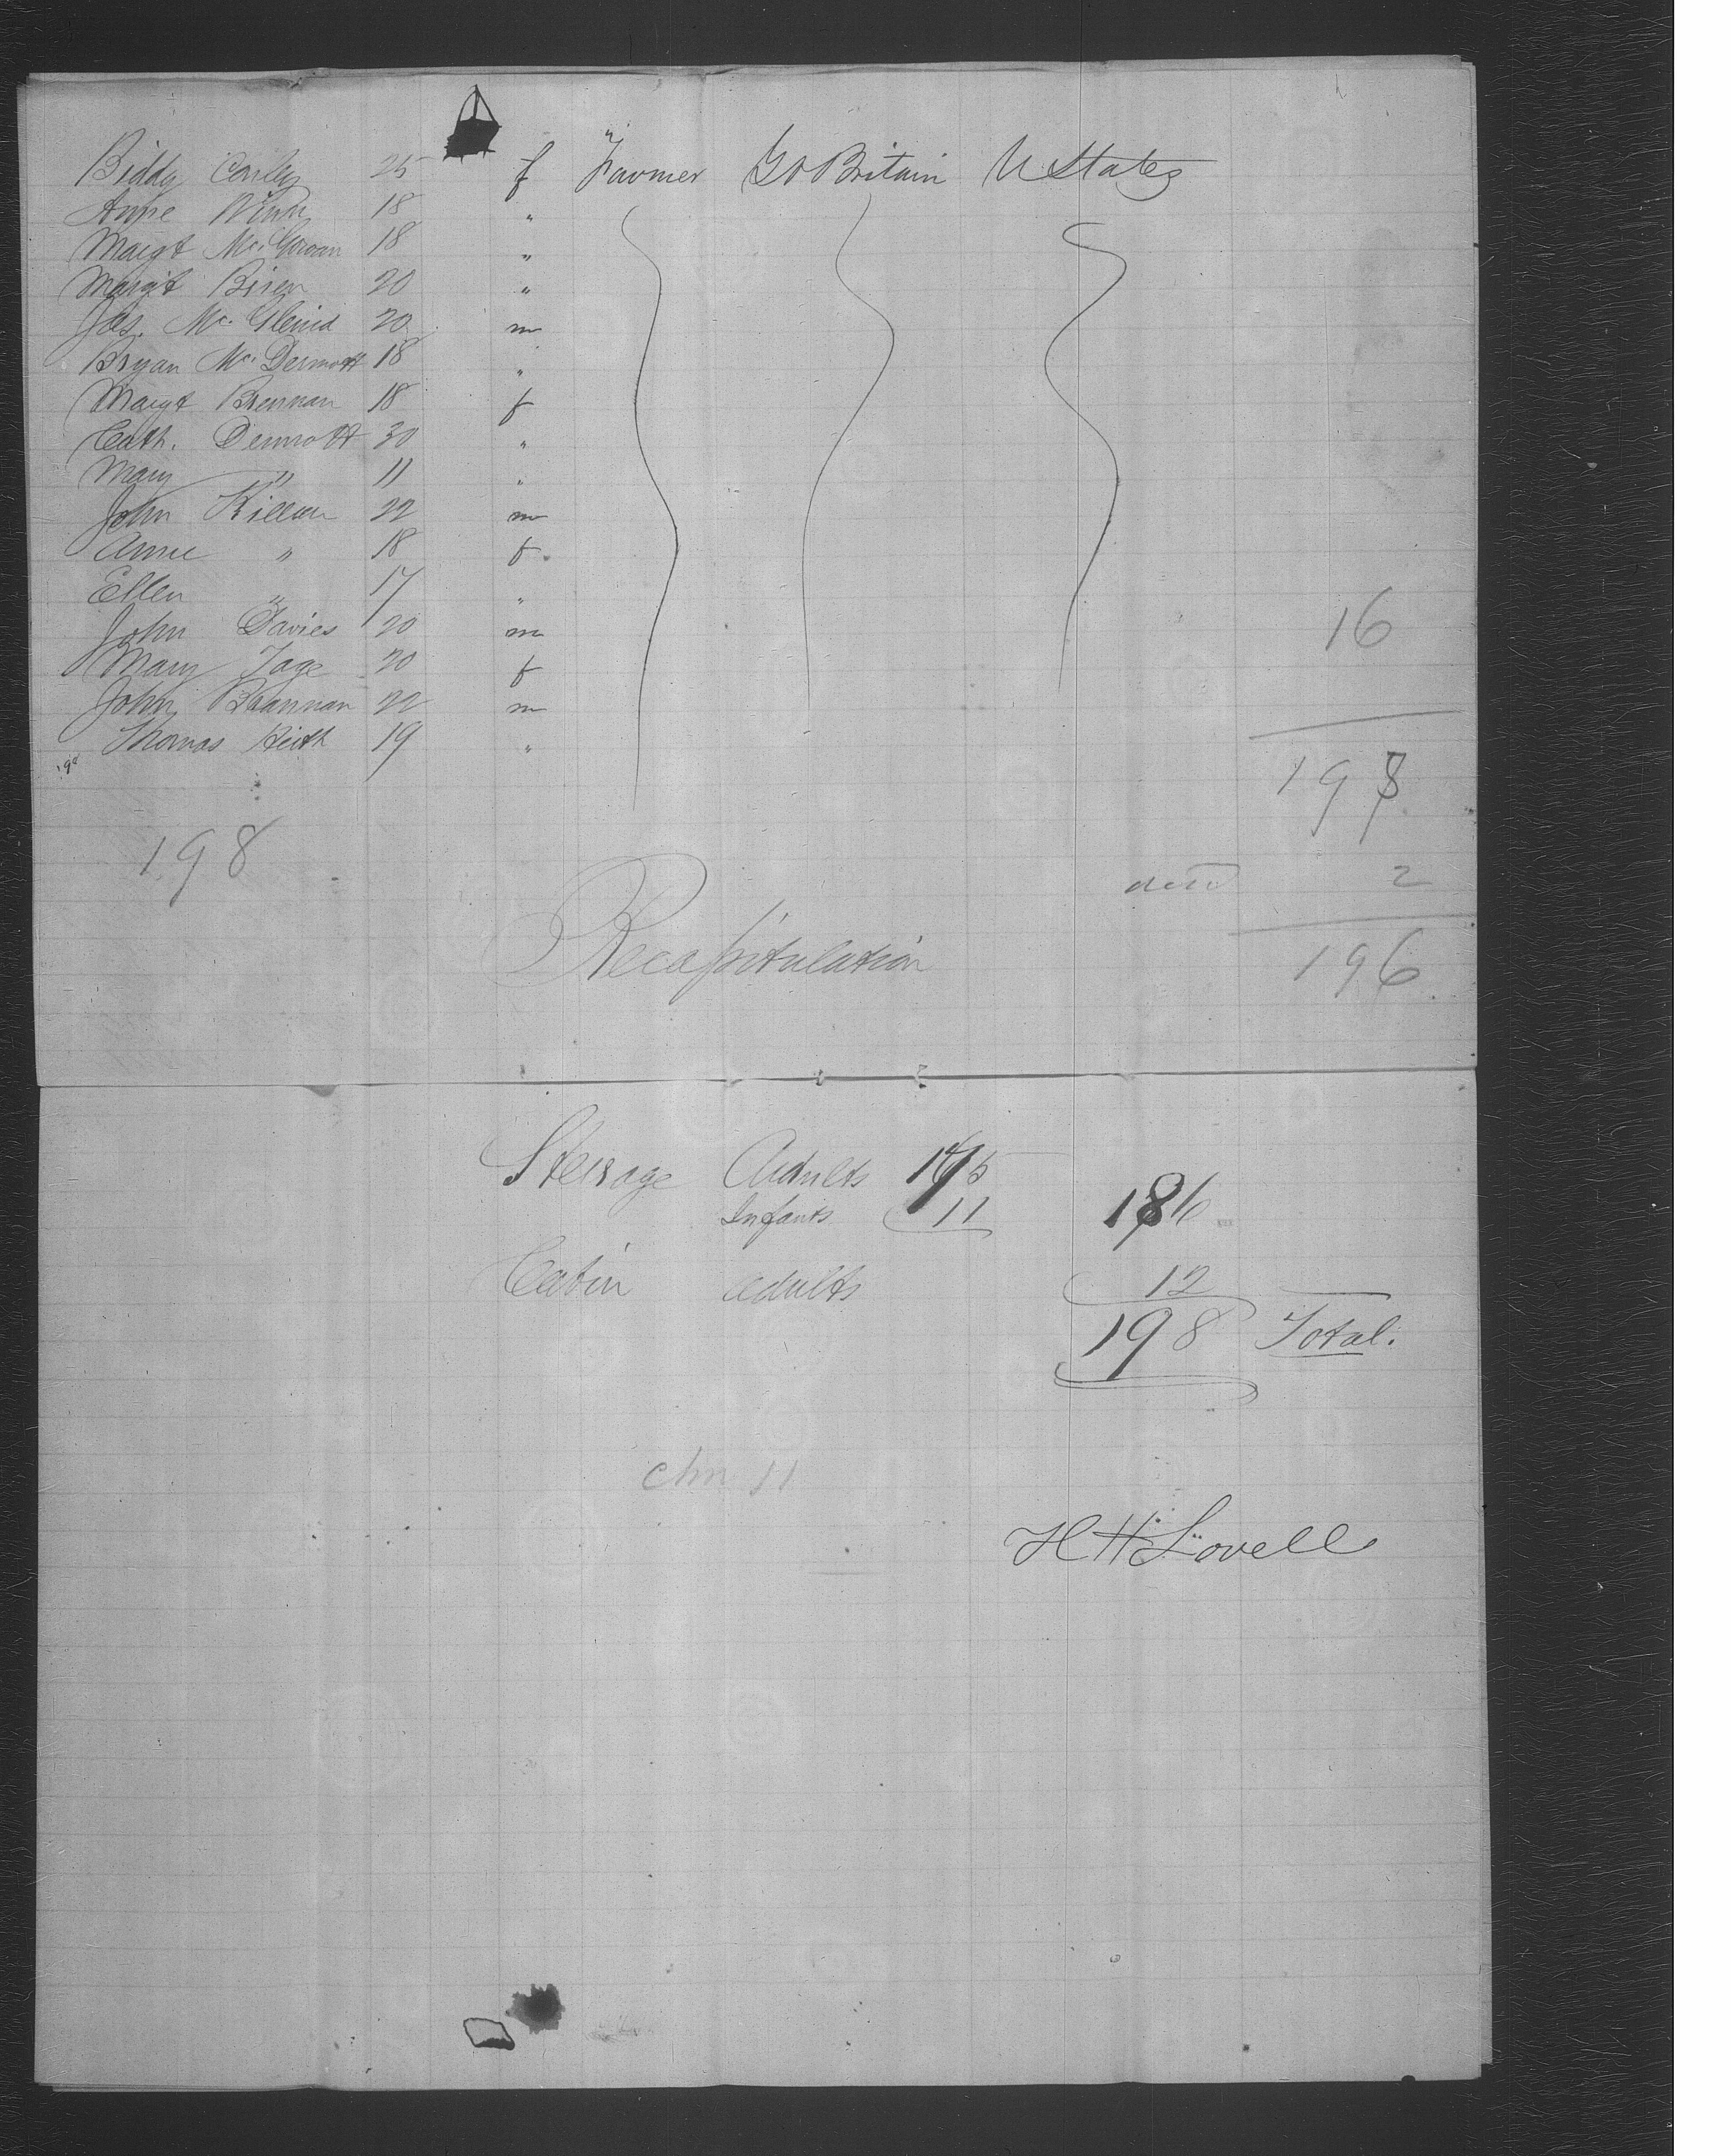 Biddy Conly 25 f Farmer Gt Britain U States
Anne 18 "
Margt Mc.Gowan 18 "
Margt 20 "
Jas. Mc. 20 m
Bryan Mc.Dermott 18 "
Margt Brennan 18 f
Cath. Dermott 30 "
Mary " 11 "
John Killan 22 m
Anne " 18 f
Ellen " 17 "
John Davies 20 m
Mary 20 f
John Brannan 22 m
Thomas Keith 19 "
16
198
198
2
196
Recapitulation
Steerage Adults 175
Infants 11 186
Cabin adults 12
198 Total.
chn 11
H H Lovell